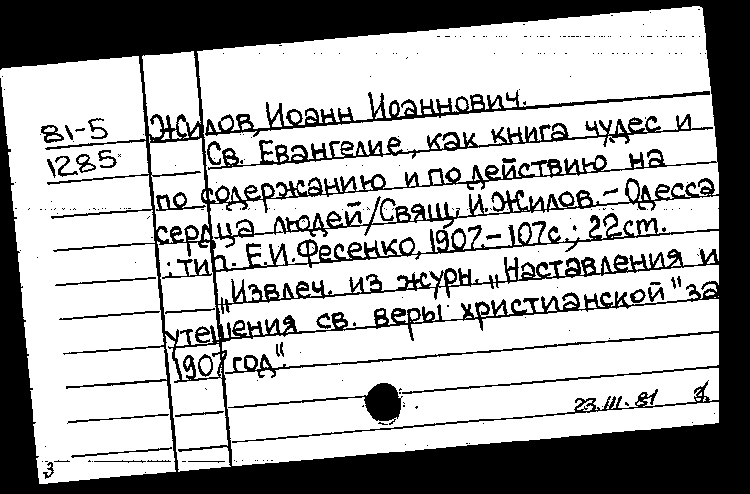 81-5
1285
Жилов, Иоанн Иоаннович.
Св. Евангелие, как книга чудес и
по содержанию и по действию на
сердца людей/Свящ. И. Жилов. – Одесса
: тип. Е.И. Фесенко, 1907. – 107с.; 22ст.
„Извлеч. из журн. „Наставления и
утешения св. веры христианской" за
1907 год".
23.III.81
3